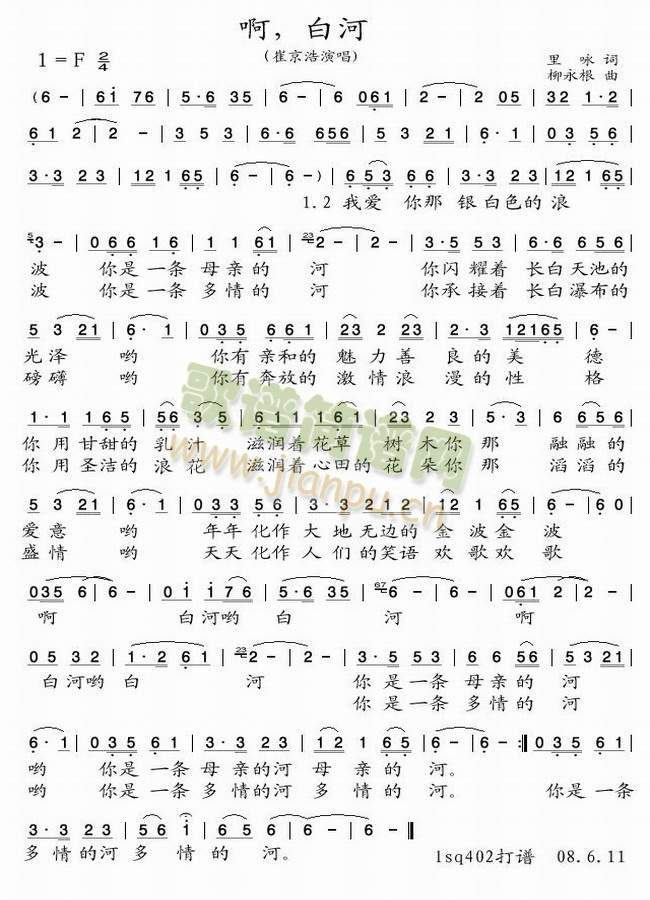 啊，白河
(崔京浩演唱)
1=F 2/4
里 咏 词
柳永根 曲
(6 - | 6i 76 | 5·6 35 | 6 - | 6 - | 6 061 | 2 - | 2 05 | 32 1·2 |
61 2 | 2 - | 3 5 3 | 6·6 656 | 5 3 21 | 6· 1 | 0 3 5 6 |
3·3 23 | 12 1 65 | 6 - | 6 - ) | 6 5 3 6 6 | 5·3 2 3 | 12 1 6 5 |
1.2 我爱 你那 银白色的浪
3 - | 066 16 | 1 1 61 | 2 - | 2 - | 3·5 53 | 6 6 656 |
波 你是一条母亲的 河 你闪耀着 长白天池的
波 你是一条多情的 河 你承接着 长白瀑布的
5 3 21 | 6· 1 | 035 661 | 23 2 23 | 2·3 5 | 12165 | 6 - |
光泽 哟 你有亲和的 魅力善 良的美 德
磅礴 哟 你有奔放的 激情浪 漫的性 格
1·1 165 | 56 35 | 611 161 | 23 2 2 | 5·3 | 6 656 |
你用甘甜的乳汁 滋润着花草 树木你那 融融的
你用圣洁的浪花 滋润着心田的花朵你那 滔滔的
爱意 哟 年年化作大地无边的金波金 波
盛情 哟 天天化作人们的笑语欢歌欢 歌
啊 白河哟 白 河 啊
05 32 | 1·2 61 | 2 - | 2 - | 3·5 53 | 6 6 56 | 5 3 21 |
白河哟 白 河 你是一条 母亲的 河
你是一条 多情的 河
哟 你是一条母亲的河母亲 的 河。
哟 你是一条多情的河多情 的 河。 你是一条
3·3 23 | 5 6 i | 6 5 | 6 - | 6 - ||
多情的河多情 的 河。
lsq402打谱 08.6.11
歌谱简谱网
www.jianpu.cn